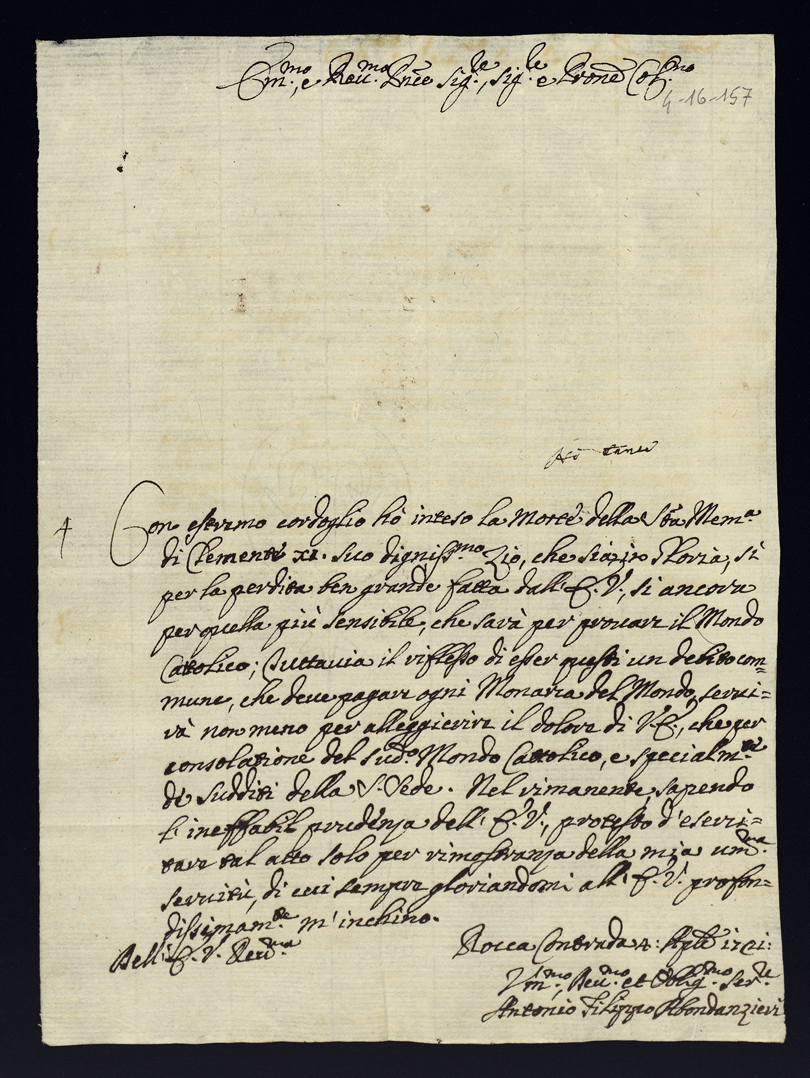 Em.mo, e Reu.mo Pnēe Sig.re, Sig.re e Pronē Col.mo
4-16-157
4
Con estremo cordoglio hò inteso la Morte della Stā Mem.a
di Clemente XI. suo digniss.mo Zio, che sia in Gloria, sì
per la perdita ben grande fatta dall' E. V., si ancora
per quella più sensibile, che sarà per prouare il Mondo
Cattolico; Tuttauia il riflesso di esser questi un debito com=
mune, che deue pagare ogni Monarca del Mondo, serui=
rà non meno per alleggierire il dolore di V. E., che per
consolatione del sud.o Mondo Cattolico, e specialm.te
de sudditi della S. Sede. Nel rimanente, sapendo
l' ineffabil prudenza dell' E. V., protesto d'eserci=
tare tal atto solo per rimostranza della mia um.ma
seruitù, di cui sempre gloriandomi all' E. V. profon=
dissimam.te m'inchino.
Dell' E. V. Reu.ma
Rocca Contrada 4: Aple 1721:
Um.mo, Deu.mo et Oblig.mo Ser.re
Antonio Filippo Abondanzieri